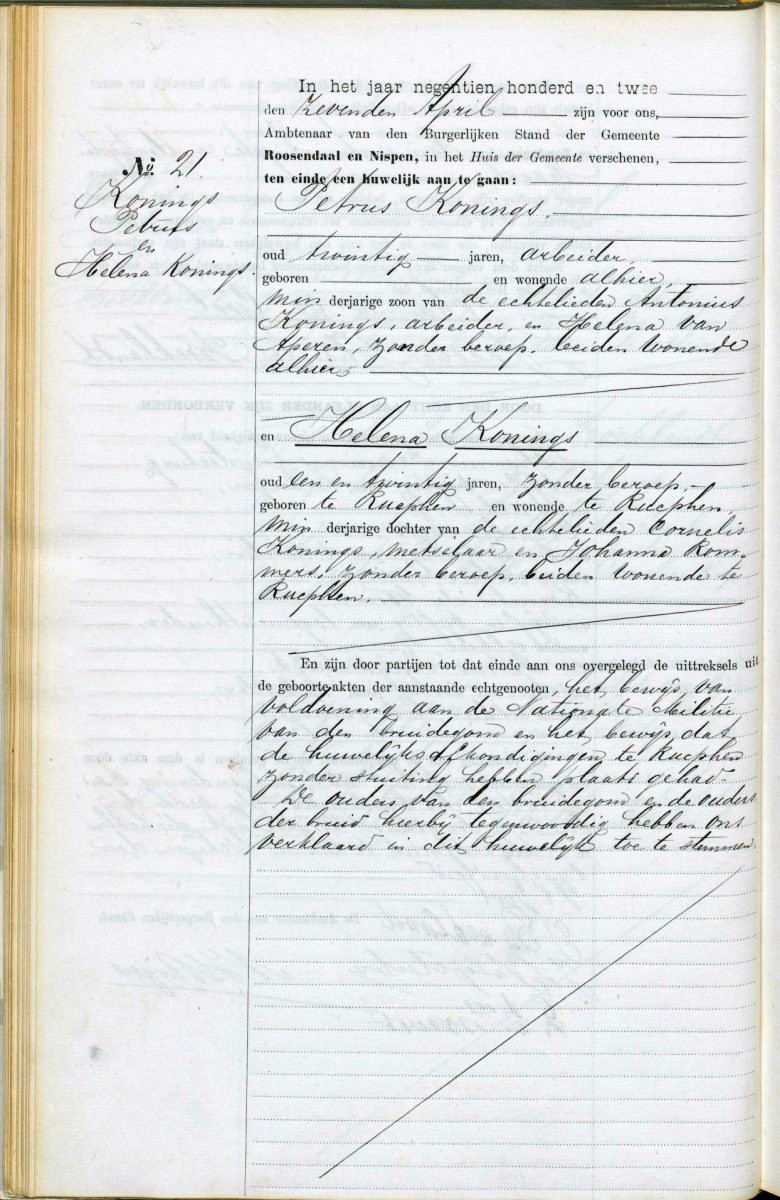 In het jaar negentien honderd en twee
den zevenden April zijn voor ons,
Ambtenaar van den Burgerlijken Stand der Gemeente
Roosendaal en Nispen, in het Huis der Gemeente verschenen,
ten einde een huwelijk aan te gaan:
No. 21.
Konings
Petrus
en
Helena Konings.
Petrus Konings.
oud twintig jaren, arbeider.
geboren en wonende alhier,
min derjarige zoon van de echtelieden Antonius
Konings, arbeider, en Helena van
Aperen, zonder beroep, beiden wonende
alhier,
en Helena Konings
oud een en twintig jaren, zonder beroep,
geboren te Rucphen en wonende te Rucphen,
min derjarige dochter van de echtelieden Cornelis
Konings, metselaar en Johanna Rom-
mers, zonder beroep, beiden wonende te
Rucphen.
En zijn door partijen tot dat einde aan ons overgelegd de uittreksels uit
de geboorte-akten der aanstaande echtgenooten, het bewijs van
voldoening aan de Nationale Militie
van den bruidegom en het bewijs, dat
de huwelijksafkondigingen te Rucphen
zonder stuiting hebben plaats gehad.
De ouders van den bruidegom en de ouders
der bruid hierbij tegenwoordig hebben ons
verklaard in dit huwelijk toe te stemmen.